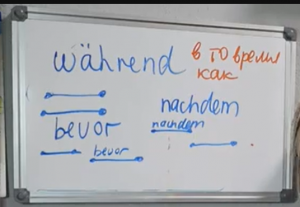 während
в то время
как
nachdem
nachdem
bevor
bevor